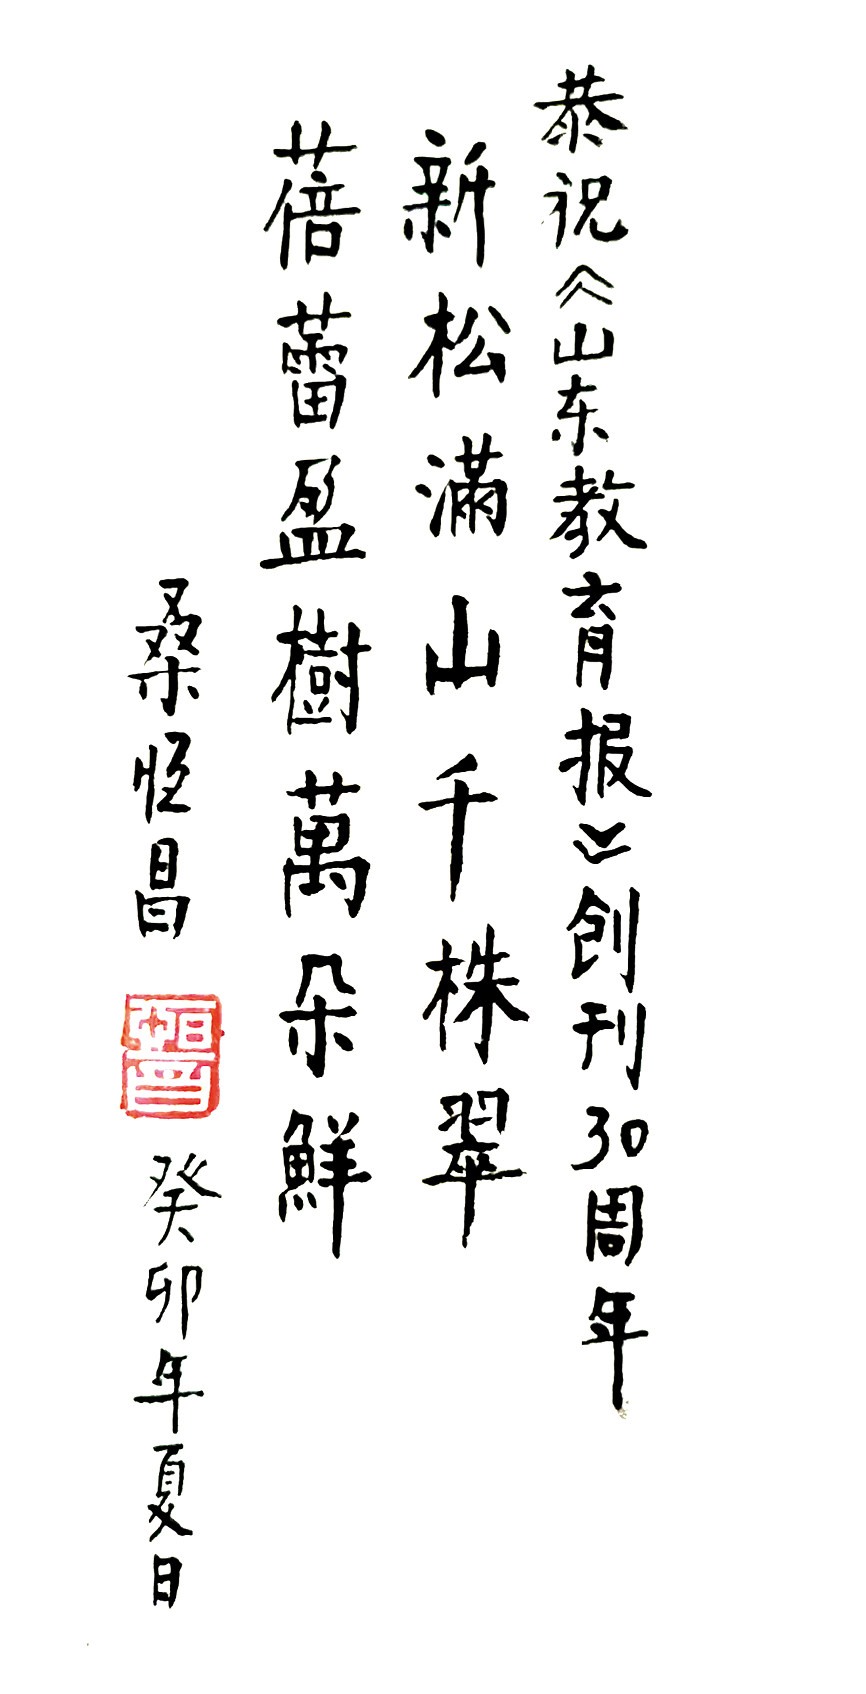 恭祝《山东教育报》创刊30周年
新松滿山千株翠
蓓蕾盈樹萬朵鮮
桑恒昌
恒昌
癸卯年夏日